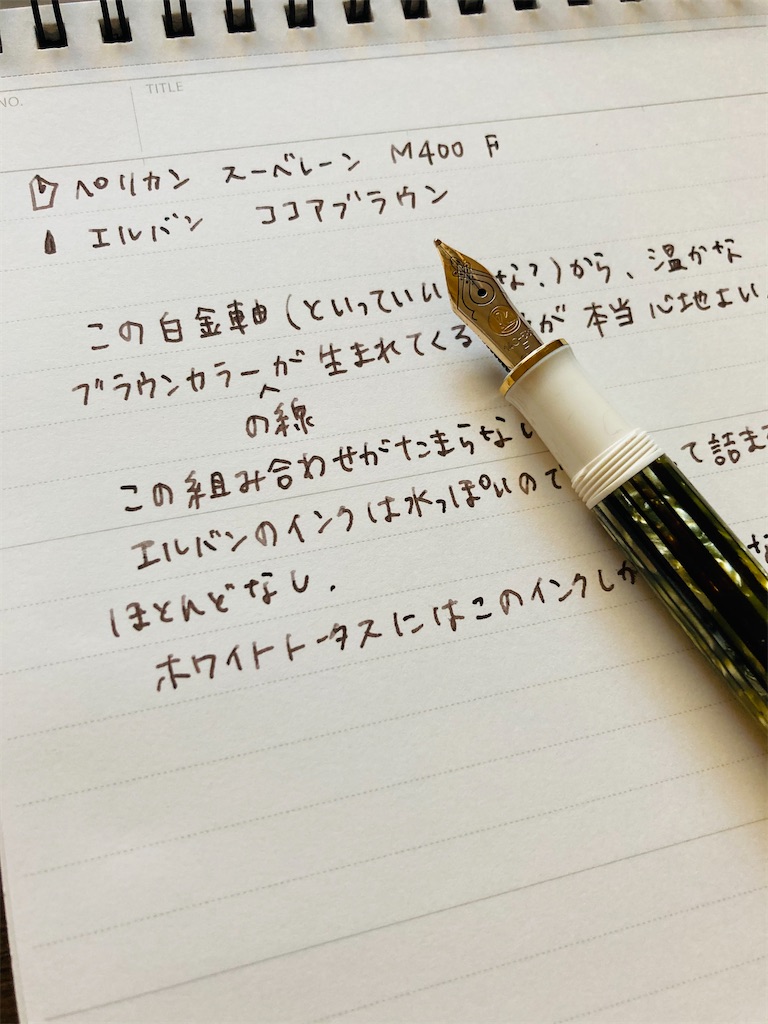 NO.
TITLE
ペリカン スーベレーン M400 F
エルバン ココアブラウン
この白金軸(といっていい な?)から、温かな
ブラウンカラーが生まれてくる が本当心地よい。
の線
この組み合わせがたまらな
エルバンのインクは水っぽいので て詰ま
ほとんどなし.
ホワイトトータスにはこのインクしか な